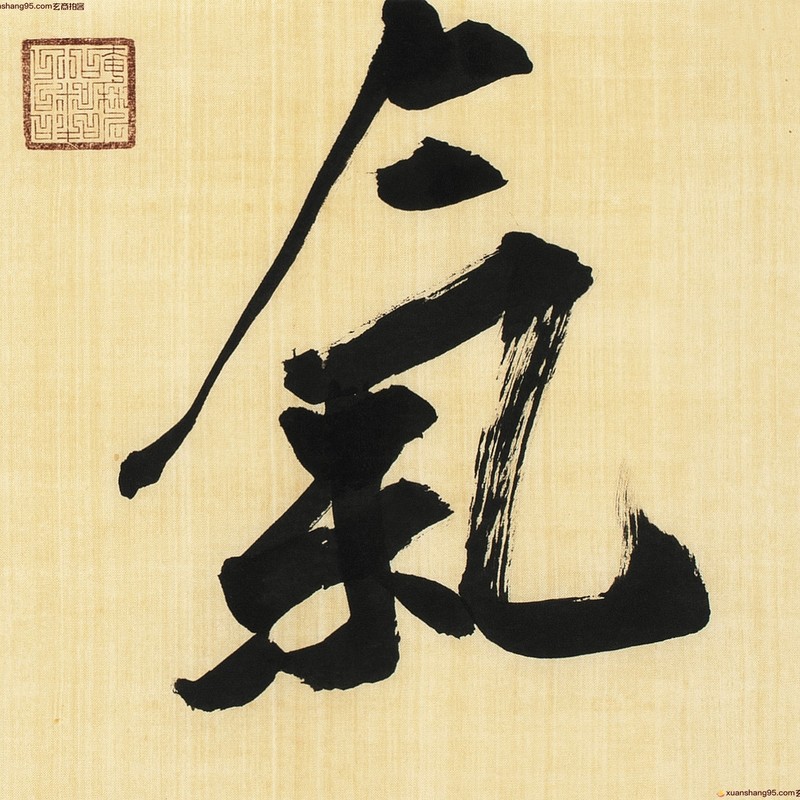 nshang95.com玄商拍客
氣
xuanshang95.com玄